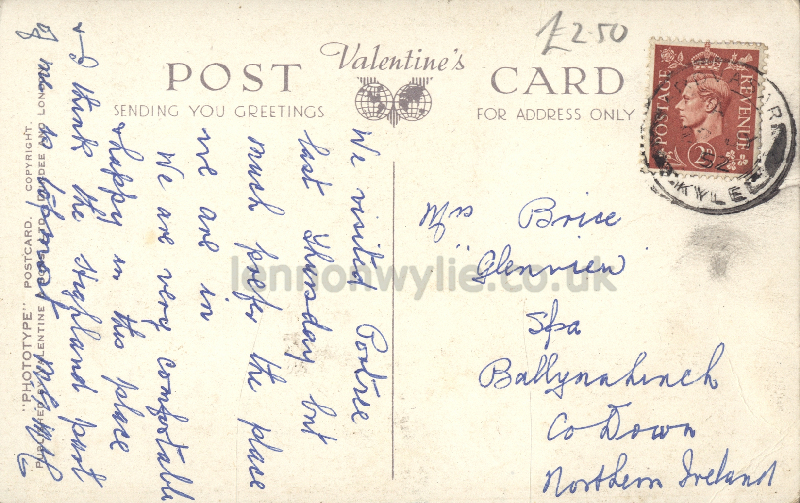 £2.50
Valentine's
POST CARD
SENDING YOU GREETINGS
FOR ADDRESS ONLY
POSTAGE REVENUE
2½
52
KYLE
We visited Portree
last Thursday but
much prefer the place
we are in
We are very comfortable
& happy in this place
& I think the Highland part
of me is
Mrs Brice
"Glenview"
Spa
Ballynahinch
Co Down
Northern Ireland
"PHOTOTYPE" POSTCARD. COPYRIGHT.
PUBLISHED BY VALENTINE & SONS LTD. DUNDEE AND LONDON
lennonwylie.co.uk